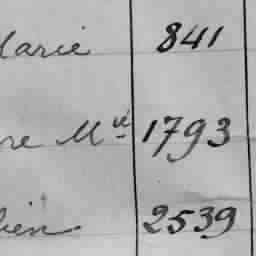 Marie 841
re Mie 1793
bien 2539